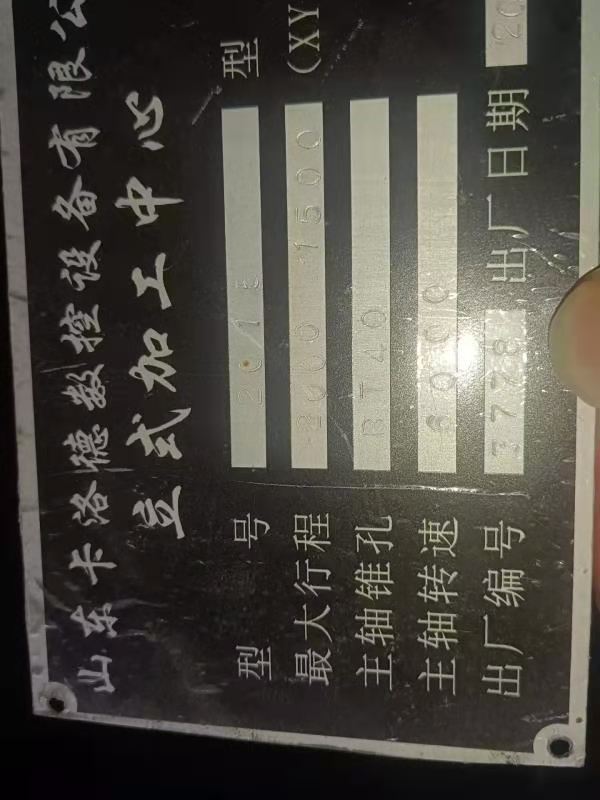 山东卡洛德数控设备有限公
立式加工中心
型号 201E 型
最大行程 1500 (XY
主轴锥孔 BT40
主轴转速 6000
出厂编号 3778 出厂日期 20